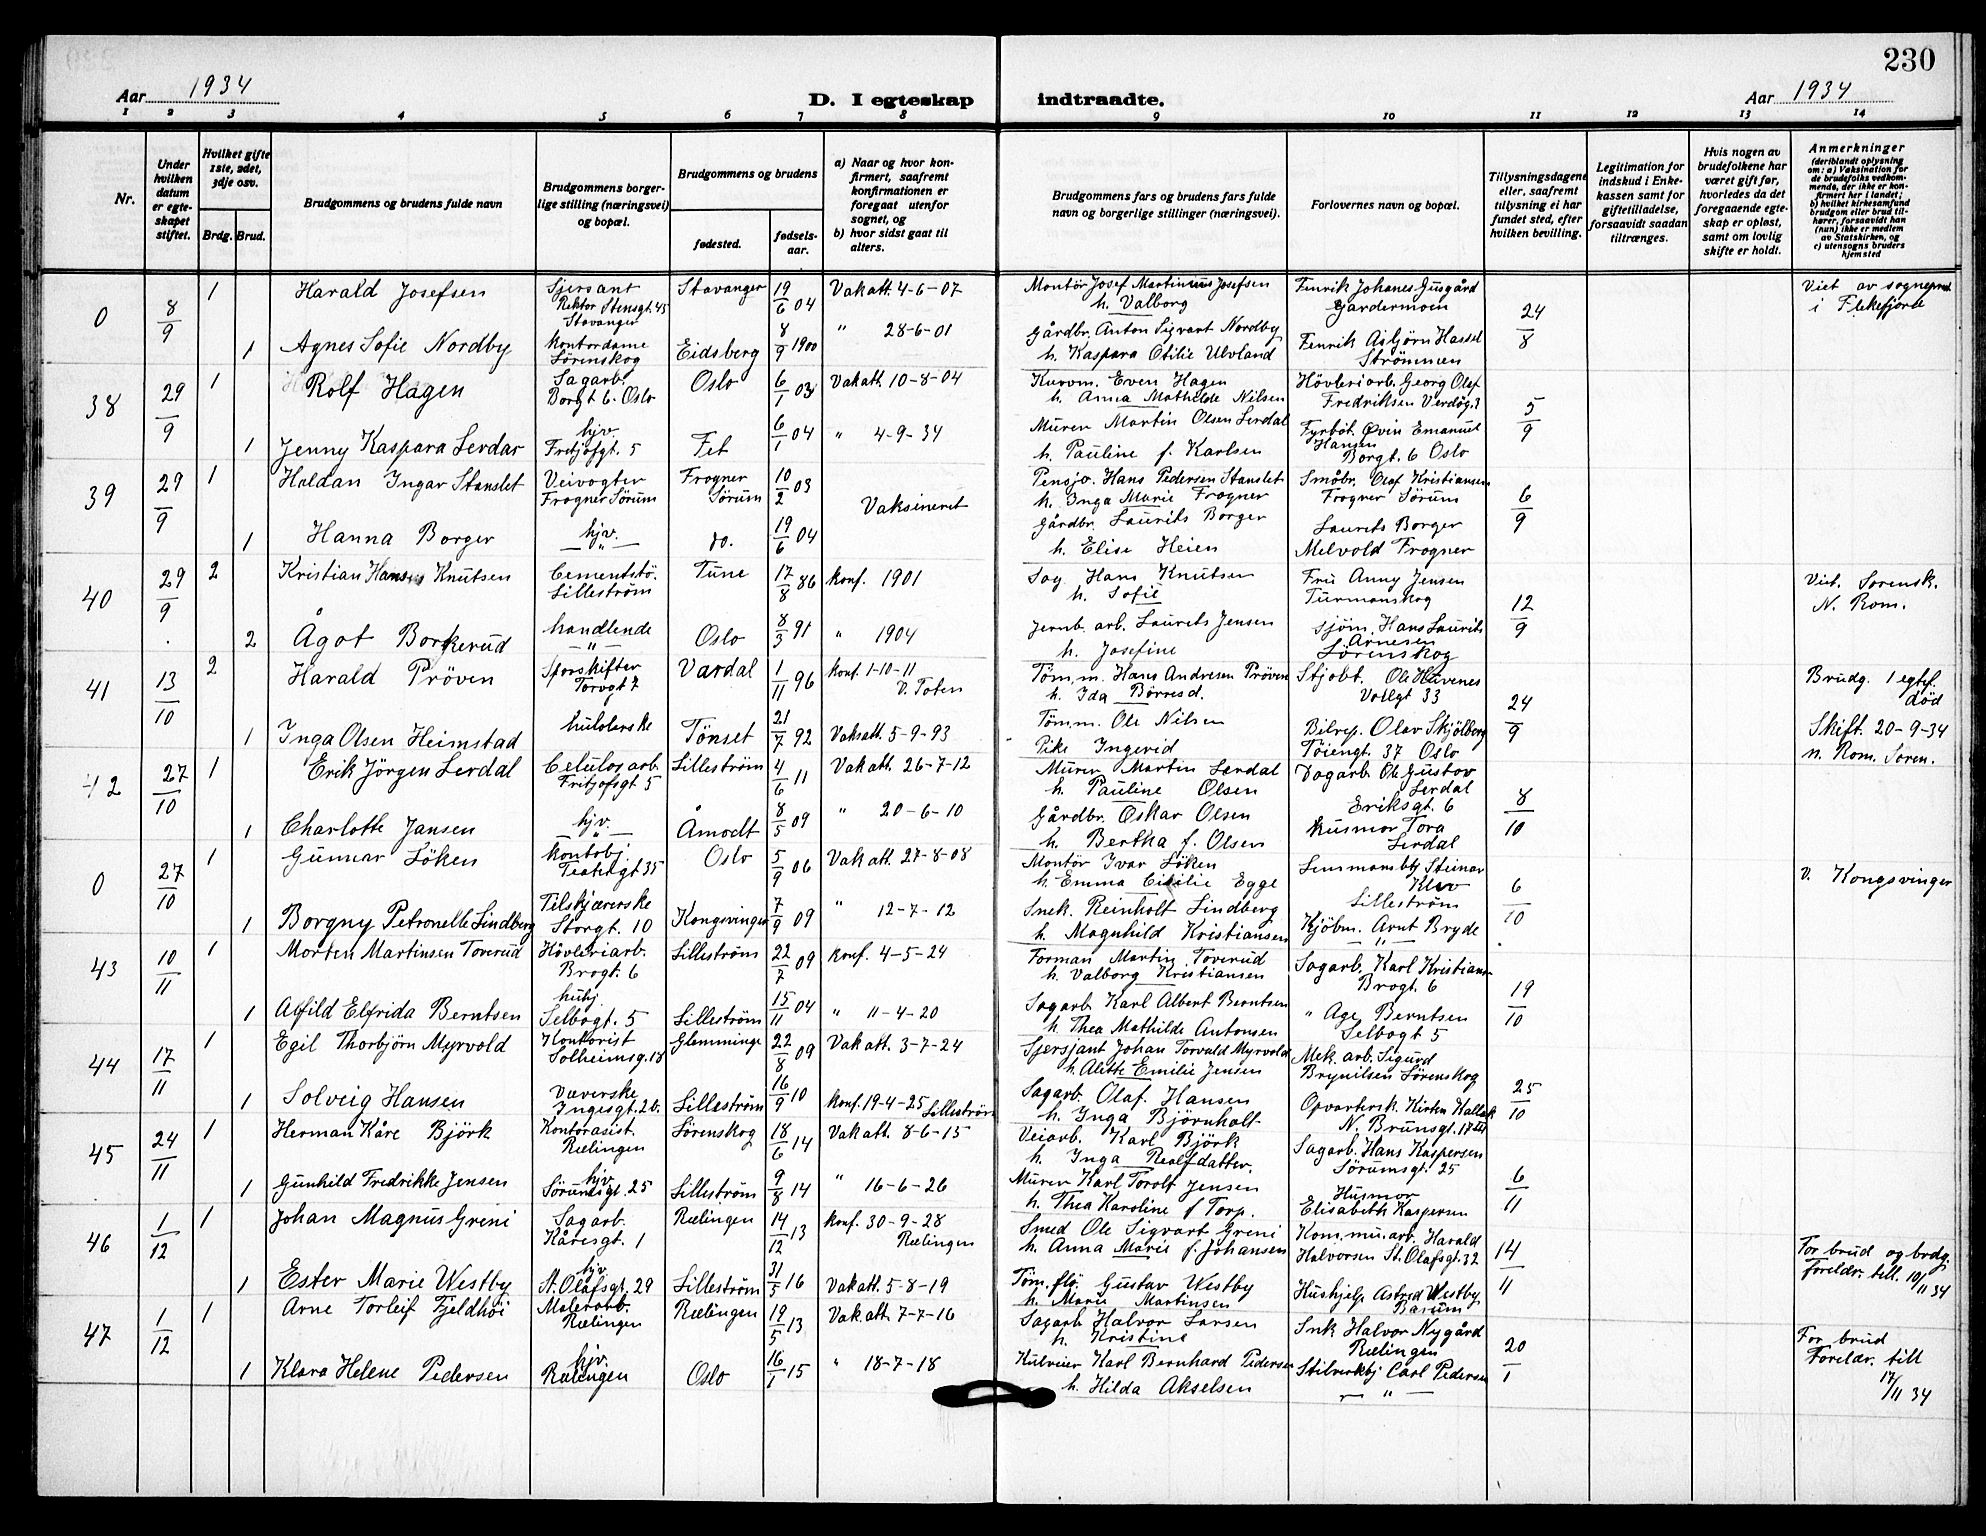 230
Aar 1934
D. I egteskap indtraadte.
Aar 1934
1 2 3 4 5 6 7 8 9 10 11 12 13 14
Nr.
Under hvilken datum er egteskapet stiftet.
Hvilket gifte 1ste, 2det, 3dje osv.
Brdg. Brud.
Brudgommens og brudens fulde navn
Brudgommens borgerlige stilling (næringsvei) og bopæl.
Brudgommens og brudens
fødested.
fødselsaar.
a) Naar og hvor konfirmert, saafremt konfirmationen er foregaat utenfor sognet, og
b) hvor sidst gaat til alters.
Brudgommens fars og brudens fars fulde navn og borgerlige stillinger (næringsvei).
Forlovernes navn og bopæl.
Tillysningsdagene eller, saafremt tillysning ei har fundet sted, efter hvilken bevilling.
Legitimation for indskud i Enkekassen samt for giftetilladelse, forsaavidt saadan tiltrænges.
Hvis nogen av brudefolkene har været gift før, hvorledes da det foregaaende egteskap er opløst, samt om lovlig skifte er holdt.
Anmerkninger
(deriblandt oplysning om: a) Vaksination for de brudefolks vedkommende, der ikke er konfirmert her i landet; b) hvilket kirkesamfund brudgom eller brud tilhører, forsaavidt han (hun) ikke er medlem av Statskirken, og c) utensogns bruders hjemsted
0 8/9 1 Harald Josefsen Sjersant Rektor Stensgt. 45 Stavanger Stavanger 19/6 04 Vakatt. 4-6-07 Montør Josef Martinius Josefsen h. Valborg Fenrik Johanes Gusgård Gardermoen 24/8 Viet av sognepr. i Flekefjord
1 Agnes Sofie Nordby Kontordame Sörenskog Eidsberg 8/9 1900 " 28-6-01 Gårdbr. Anton Sigvart Nordby h. Kaspara Otilie Ulvland Fenrik Asbjörn Hassel Strömmen
38 29/9 1 Rolf Hagen Sagarb. Borgt 6. Oslo Oslo 6/1 03 Vakatt. 10-8-04 Kurvm. Even Hagen h. Anna Mathilde Nilsen Hövleriarb. Georg Olaf Fredriksen Verdög. 3 5/9
1 Jenny Kaspara Lerdar hjv. Fritjofgt. 5 Fet 6/1 04 " 4-9-34 Murer Martin Olsen Lerdal h. Pauline f. Karlsen Fyrböt. Övin Emanuel Hansen Borgt. 6 Oslo
39 29/9 1 Haldan Ingar Stanslet Veivogter Frogner Sörum Frogner Sörum 10/2 03 Vaksineret Pensjo. Hans Pedersen Stanslet h. Inga Marie Frogner Småbr. Olaf Kristiansen Frogner Sörum 6/9
1 Hanna Borger hjv. — " — do. 19/6 04 Gårdbr. Laurits Borger h. Elise Heien Laurits Borger Melvold Frogner
40 29/9 2 Kristian Hansen Knutsen Cementstö. Lilleström Tune 17/8 86 konf. 1901 Sag. Hans Knutsen h. Sofie Fru Anny Jensen Turmanskog 12/9 Viet. Sorensk. N. Rom.
2 Ågot Borkerud handlende — " — Oslo 8/3 91 " 1904 Jernb. arb. Laurits Jensen h. Josefine Sjöm. Hans Laurits Arnesen Sörenskog
41 13/10 2 Harald Pröven Sporskifter Torvgt 7 Vardal 1/11 96 konf. 1-10-11 V. Toten Töm.m. Hans Andresen Pröven h. Ida Börresd. Stjobt. Ole Havenes Vollgt 33 24/9 Brudg. 1 egtef. död Skift. 20-9-34 N. Rom. Soren.
1 Inga Olsen Heimstad hulolerske Tönset 21/7 92 Vaksatt. 5-9-93 Tömm. Ole Nilsen Pike Ingerid Bilrep. Olav Skjölberg Töiengt. 37 Oslo
42 27/10 1 Erik Jörgen Lerdal Celulosarb. Fritjofsgt 5 Lilleström 4/6 11 Vakatt. 26-7-12 Murer Martin Lerdal h. Pauline Olsen Dagarb. Ole Gustav Lerdal Eriksgt. 6 8/10
1 Charlotte Jansen hjv. — " — Åmodt 8/5 09 " 20-6-10 Gårdbr. Oskar Olsen h. Bertha f. Olsen Husmor Tora Lerdal
0 27/10 1 Gunnar Löken Kontobj. Teatergt 35 Oslo 5/9 06 Vakatt. 27-8-08 Montör Ivar Löken h. Emma Cicilie Egge Lensmansbtj Steinar Klev Lilleström 6/10 V. Kongsvinger
1 Borgny Petronelle Lindberg Tilskjærerske Storgt. 10 Kongsvinger 7/9 09 " 12-7-12 Snek. Reinholt Lindberg h. Magnhild Kristiansen Kjöbm. Arnt Bryde — " —
43 10/11 1 Morten Martinsen Toverud Hövleriarb. Brogt. 6 Lilleström 22/7 09 konf. 4-5-24 Forman Martin Toverud h. Valborg Kristiansen Sagarb. Karl Kristians. Brogt. 6 19/10
1 Asfild Elfrida Berntsen hushj. Selbogt. 5 Lilleström 15/11 04 " 11-4-20 Sagarb. Karl Albert Berntsen h. Thea Mathilde Antonsen " Age Berntsen Selbogt 5
44 17/11 1 Egil Thorbjörn Myrvold Kontorist Solheimsg. 18 Glemminge 22/8 09 Vakatt. 3-7-24 Sjersjant Johan Torvald Myrvold h. Alette Emilie Jensen Mek. arb. Sigurd Brynilsen Sörenskog 25/10
1 Solveig Hansen Væverske Ingesgt. 2b. Lilleström 16/9 10 konf. 19-4-25 Lilleström Sagarb. Olaf Hansen h. Inga Björnholt Opvartersk. Kirten Hallak N. Brunsgt. 17 III
45 24/11 1 Herman Kåre Björk Kontorasist. Rælingen Sörenskog 18/6 14 Vakatt. 8-6-15 Veiarb. Karl Björk h. Inga Realfdatter. Sagarb. Hans Kaspersen Sörumsgt. 25 6/11
1 Gunhild Fredrikke Jensen hjv. Sörumsgt. 25 Lilleström 9/8 14 " 16-6-26 Murer Karl Torolf Jensen h. Thea Karoline f Torp. Husmor Elisabeth Kaspersen
46 1/12 1 Johan Magnus Greni Sagarb. Kåresgt. 1 Rælingen 14/12 13 konf. 30-9-28 Rælingen Smed Ole Sigvart Greni h. Anna Marie f. Johansen Kom.mu.arb. Harald Halvorsen St. Olafsgt. 32 14/11 For brud og brdg. foreldr. till. 10/11 34
1 Ester Marie Westby hjv St. Olafsgt. 29 Lilleström 31/5 16 Vakatt. 5-8-19 Töm. flö. Gustav Westby h. Marie Martinsen Hushjelp Astrid Westby Bærum
47 1/12 1 Arne Torleif Fjeldhöi Malerarb. Rælingen Rælingen 19/5 13 Vak.att 7-7-16 Sagarb Halvor Larsen h. Kristine Snk Halvor Nygård Rælingen 20/1 For brud Foreldr. till 17/11 34
1 Klara Helene Pedersen hjv. Rælingen Oslo 16/1 15 " 18-7-18 Kulveier Karl Bernhard Pedersen h. Hilda Akselsen Stilverkbj Carl Pedersen — " —